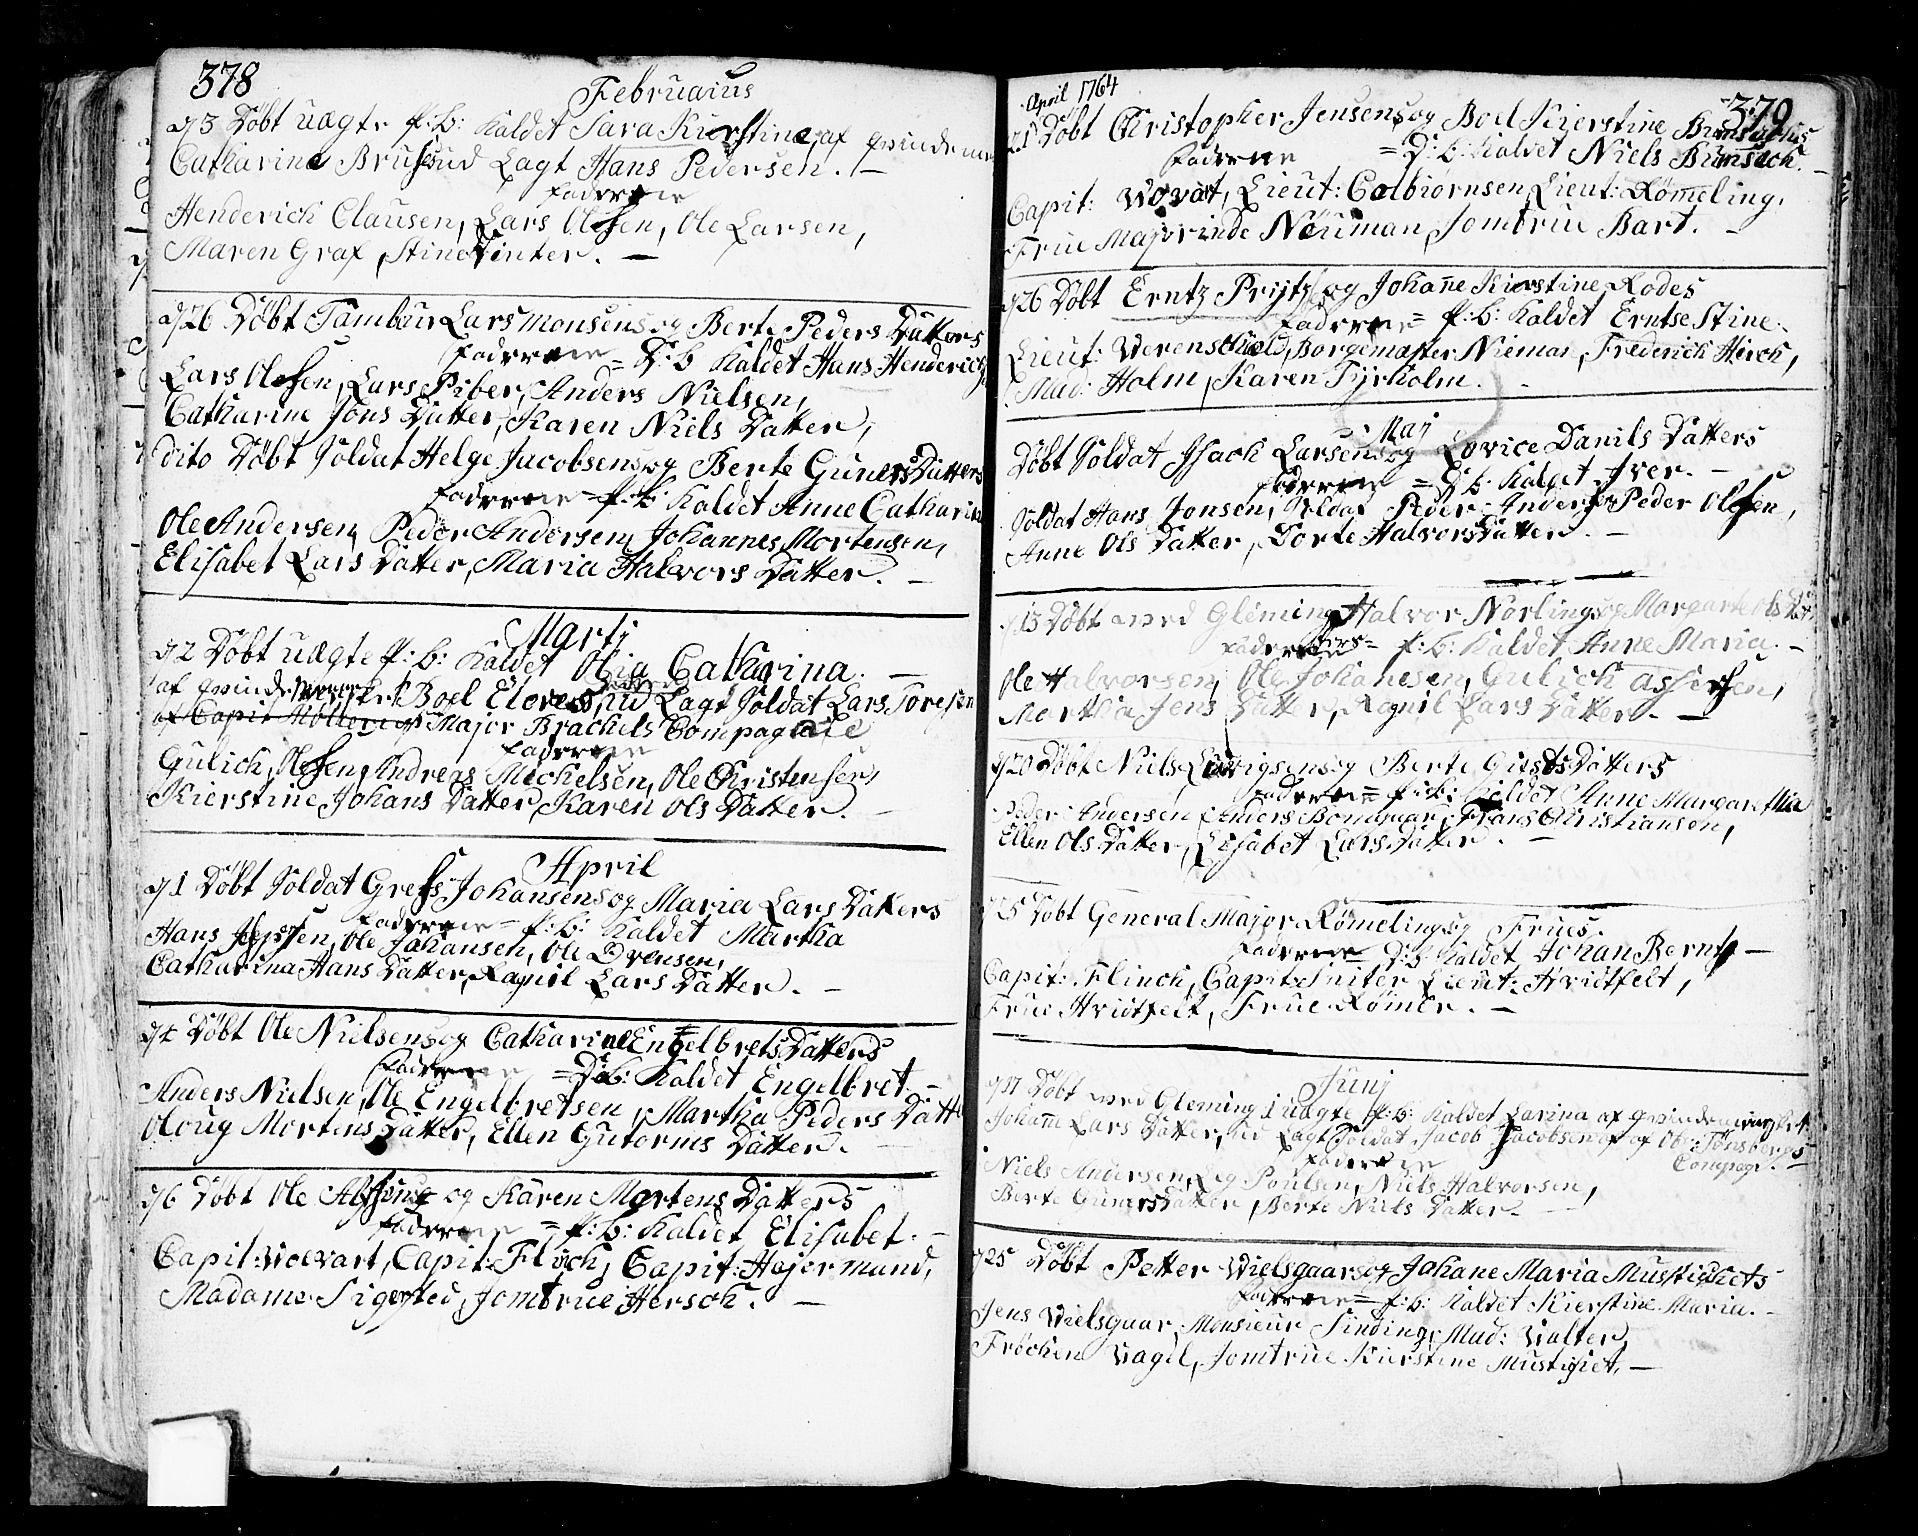 378
Februarius
d/3 Døbt uægte P:B: Kaldet Sara Kierstine af Qvindemen
Catharine Brusgud Lagt Hans Pedersen. —
Faderne
Henderich Clausen, Lars Olssen, Ole Larsen,
Maren Graf, Stine Winter. —
d/26 Døbt Tambur Lars Monsens og Berte Peders Datters
Fadderne = D:B Kaldet Hans Henderich
Lars Olssen, Lars Piber, Anders Nielsen,
Catharine Jons Datter, Karen Niels Datter,
dito Døbt Soldat Helge Jacobsens og Berte Guners Datters
Fadderne = P:B: Kaldet Anne Catharina
Ole Andersen, Peder Andersen, Johannes Mortensen,
Elisabet Lars Datter, Maria Halvors Datter. —
Martj
d/2 Døbt uægte P:B: Kaldet Olia Catharina. —
af Qvindemennisket Boel Elovs, ud Lagt Soldat Lars Toresen
Major Brachels Compagnie
Fadderne
Gulich Olssen, Andreas Mechelsen, Ole Christensen,
Kierstine Johans Datter, Karen Ols Datter. —
April
d/1 Døbt Soldat Grefs Johansens og Maria Lars Datters
Fadderne = P:B: Kaldet Martha
Hans Jepsen, Ole Johansen, Ole Evensen,
Catharina Hans Datter, Ragnil Lars Datter. —
d/4 Døbt Ole Nielsens og Catharine Engelbrets Datters
Fadderne = D:B: Kaldet Engelbret. —
Anders Nielsen, Ole Engelbretsen, Martha Peders Datt
Oloug Mortens Datter, Ellen Gutorms Datter. —
d/6 Døbt Ole og Karen Mortens Datters
Fadderne = P:B: Kaldet Elisabet. —
Capit: Wolvart, Capit: Flych, Capit: Hajormand,
Madame Sigersted, Jomfrue Hersch. —
April 1764
379
Døbt Christopher Jensens og Boel Kierstine
Fadderne = D:B: Kaldet Niels Bumsach. —
Capit: Lieut: Colbiørnsen, Lieut: Rømeling,
Frue Majorinde Neuman, Jomfrue Bart. —
d/26 Døbt Erntz Prytz og Johanne Kierstine Rodes
Fadderne = P:B: Kaldet Erntse Stine.
Lieut: Werenskiold, Borgemæster Nieman, Frederich Hirch,
Mad: Holm, Karen Fyrholm.
Maj
Døbt Soldat Isach Larsens og Lovice Danils Datters
Fadderne = D:B: Kaldet Iver. —
Soldat Hans Jonsen, Soldat Peder Anders: Peder Olssen,
Anne Ols Datter, Dorte Halvors Datter. —
d/13 Døbt med Gleming Halvor Norlings og Margarte Ols Dat:
Fadderne = P:B: Kaldet Anne Maria. —
Ole Halvorsen, Ole Johanesen, Gulich Assersen,
Martha Jens Datter, Ragnil Lars Datter. —
d/20 Døbt Niels Ludvigsens og Berte Datters
Fadderne = P:B: Kaldet Anne Margaretha
Peder Andersen, Anders Bommar, Frans Christiansen,
Ellen Ols Datter, Lisabet Lars Datter. —
Døbt General Major Rømelings og Frues.
Fadderne = D:B: Kaldet Johan Bernt —
Capit: Flinch, Capit: Sniter Lieut: Hvidtfelt,
Frue Hvidtfelt, Frue Rømer. —
Junj
d/17 Døbt med Gleming 1 uægte P:B: Kaldet Larina af Qvindemennisket
Johane Lars Datter, ud Lagt Soldat Jacob Jacobsen af Ob: Tønsbergs
Fadderne Compag. —
Niels Andersen, Leg Poulsen, Niels Halvorsen,
Berte Guners Datter, Berte Niels Datter. —
d/25 Døbt Petter Wielsgaars og Johane Maria Mustichets
Fadderne = P:B: Kaldet Kierstine Maria. —
Jens Wielsgaar, Monsieur Sinding, Mad: Walter,
Frøchen Wagel, Jomfrue Kierstine Mustichet. —